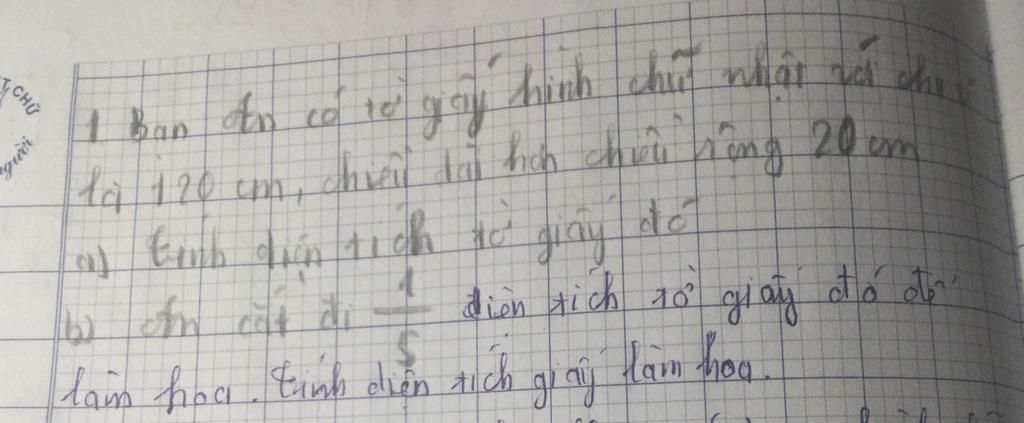 TỊ CHỮ
người
1 Bạn An có tờ giấy hình chữ nhật có chu vi
là 120 cm, chiều dài hơn chiều rộng 20 cm
a) tính diện tích tờ giấy đó
b) An cắt đi 1/5 diện tích tờ giấy đó để
làm hoa. tính diện tích giấy làm hoa.